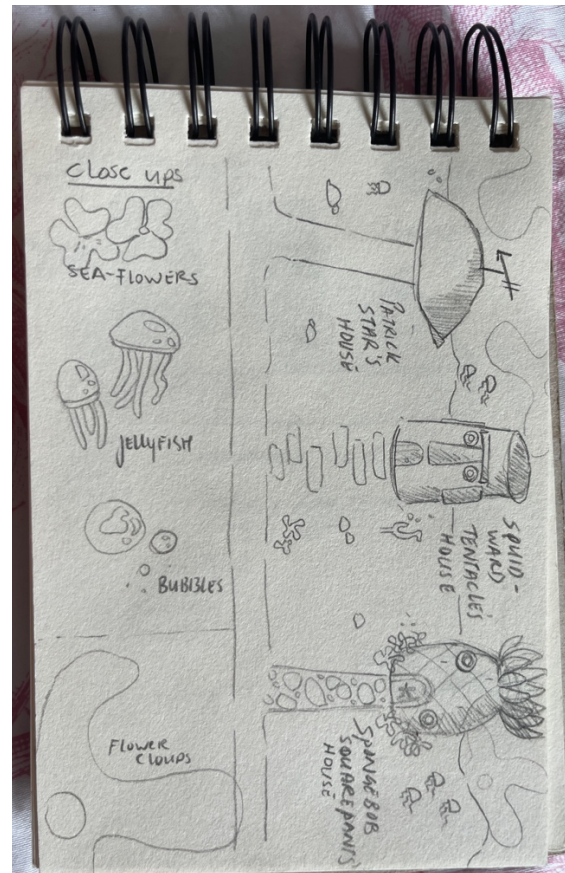 Close ups
SEA-FLOWERS
JELLYFISH
BUBBLES
FLOWER
CLOUDS
PATRICK
STAR'S
HOUSE
SQUID-
WARD
TENTACLE'S
HOUSE
SPONGEBOB
SQUAREPANTS'
HOUSE